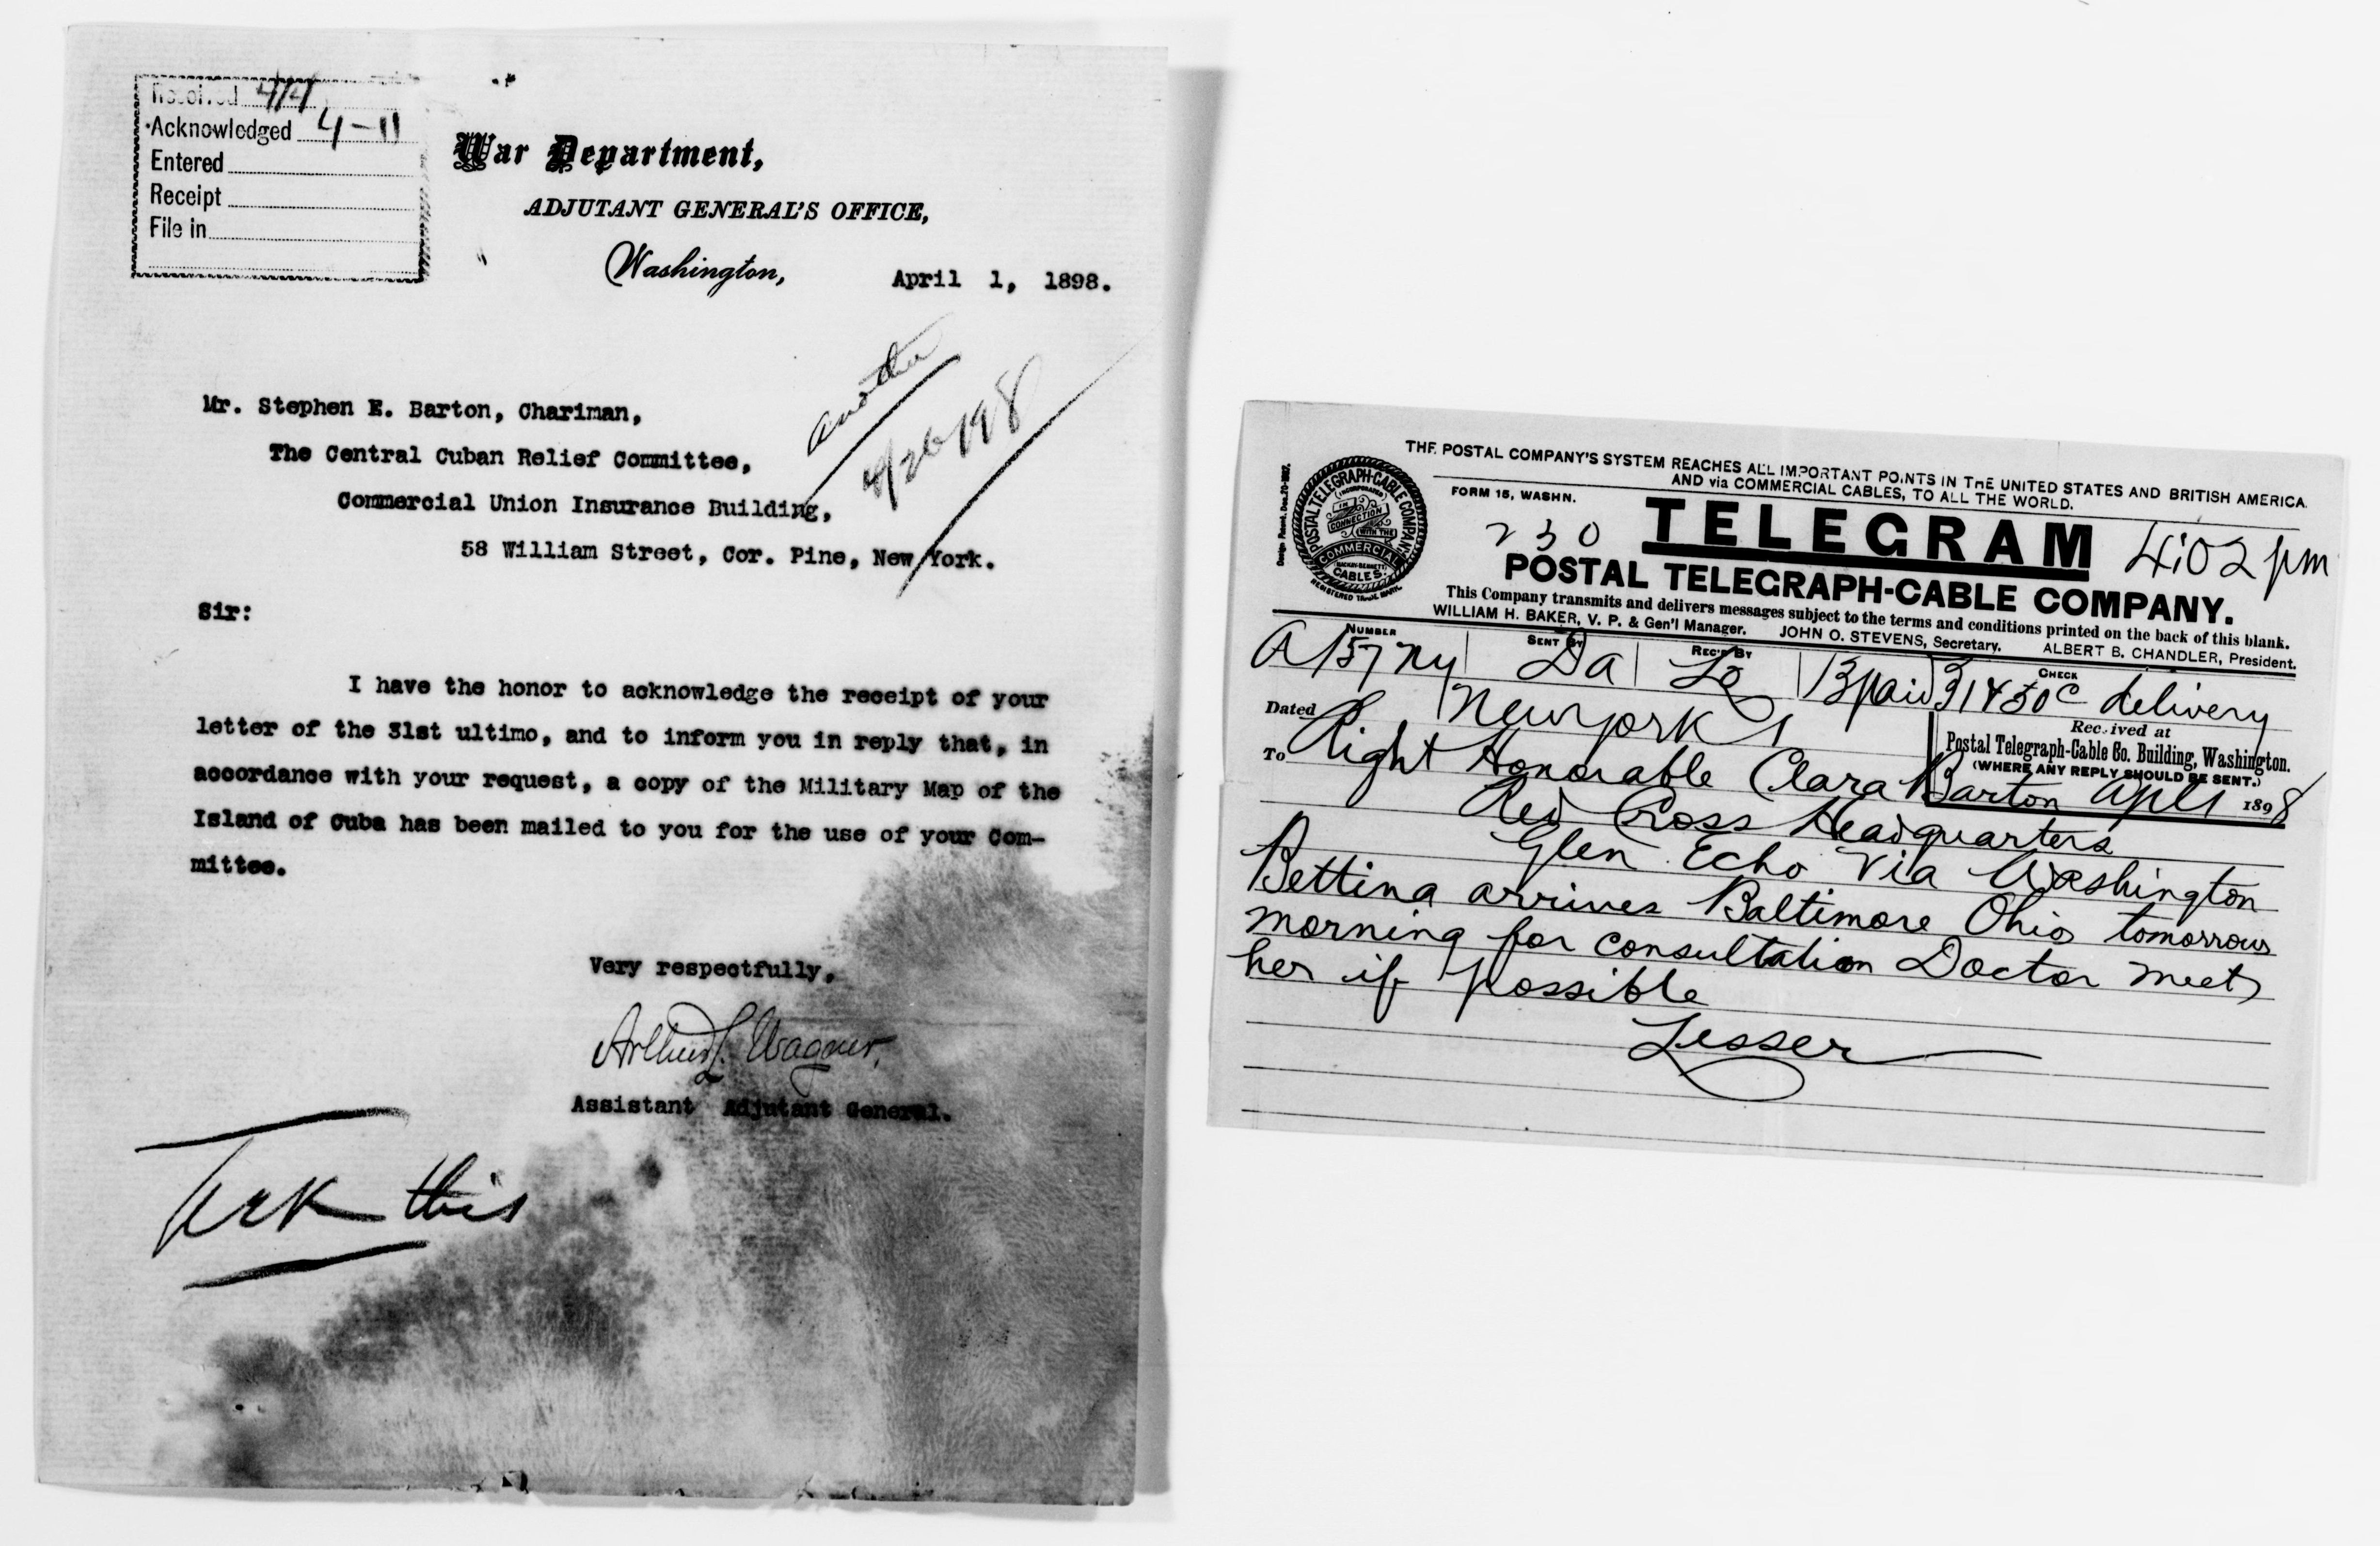 Received 4/4
Acknowledged 4-11
Entered
Receipt
File in
War Department,
ADJUTANT GENERAL'S OFFICE,
Washington, April 1, 1898.
another
4/26/98
Mr. Stephen E. Barton, Chariman,
The Central Cuban Relief Committee,
Commercial Union Insurance Building,
58 William Street, Cor. Pine, New York.
Sir:
I have the honor to acknowledge the receipt of your
letter of the 31st ultimo, and to inform you in reply that, in
accordance with your request, a copy of the Military Map of the
Island of Cuba has been mailed to you for the use of your Com-
mittee.
Very respectfully,
Arthur L. Wagner,
Assistant Adjutant General.
this
THE POSTAL COMPANY'S SYSTEM REACHES ALL IMPORTANT POINTS IN THE UNITED STATES AND BRITISH AMERICA.
AND via COMMERCIAL CABLES, TO ALL THE WORLD.
POSTAL TELEGRAPH-CABLE COMPANY
(INCORPORATED)
IN CONNECTION WITH THE
COMMERCIAL
(MACKAY-BENNETT)
CABLES.
REGISTERED TRADE MARK.
FORM 15, WASHN.
230 TELEGRAM 4:02 pm
POSTAL TELEGRAPH-CABLE COMPANY.
This Company transmits and delivers messages subject to the terms and conditions printed on the back of this blank.
WILLIAM H. BAKER, V. P. & Gen'l Manager. JOHN O. STEVENS, Secretary. ALBERT B. CHANDLER, President.
NUMBER SENT BY REC'D BY CHECK
A 157 ny Da Lo paid 30c delivery
Dated New york 1
Received at
Postal Telegraph-Cable Co. Building, Washington.
(WHERE ANY REPLY SHOULD BE SENT.)
To Right Honorable Clara Barton Apl 1 1898
Red Cross Headquarters
Glen Echo Via Washington
Bettina arrives Baltimore Ohio tomorrow
morning for consultation Doctor meet
her if possible
Lesser